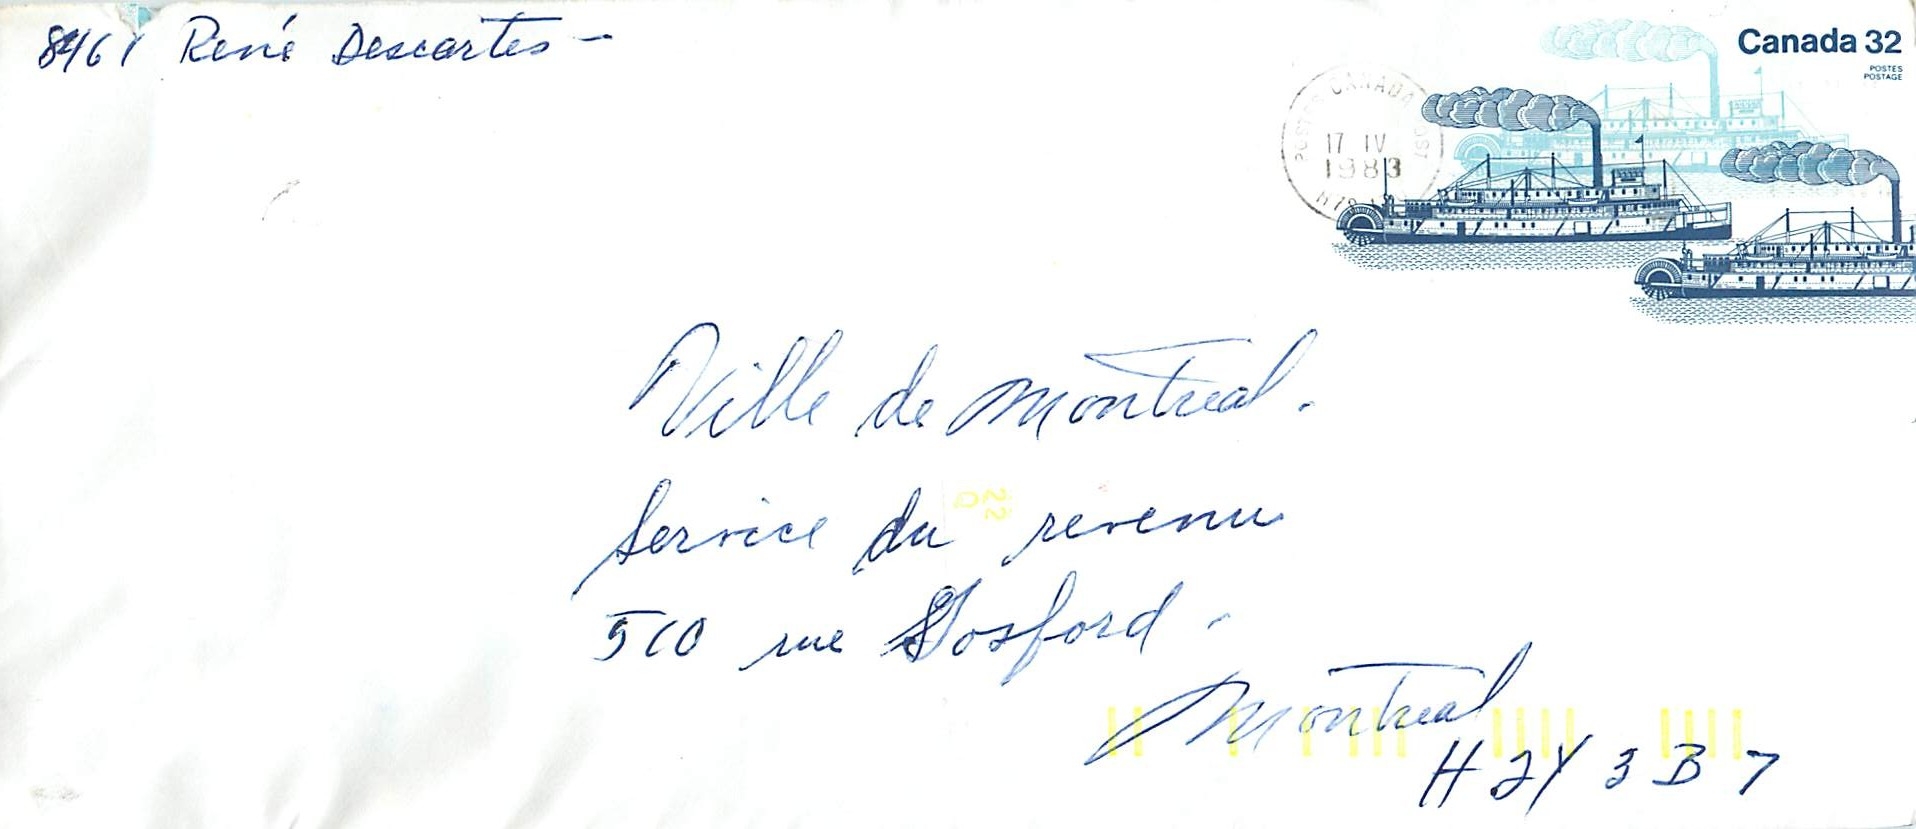 8461 René Descartes -
Canada 32
POSTES
POSTAGE
POSTES CANADA POST
17 IV
1983
Ville de Montreal.
Service du revenu
510 rue Gosford -
Montreal
H2Y 3B7
22
Q